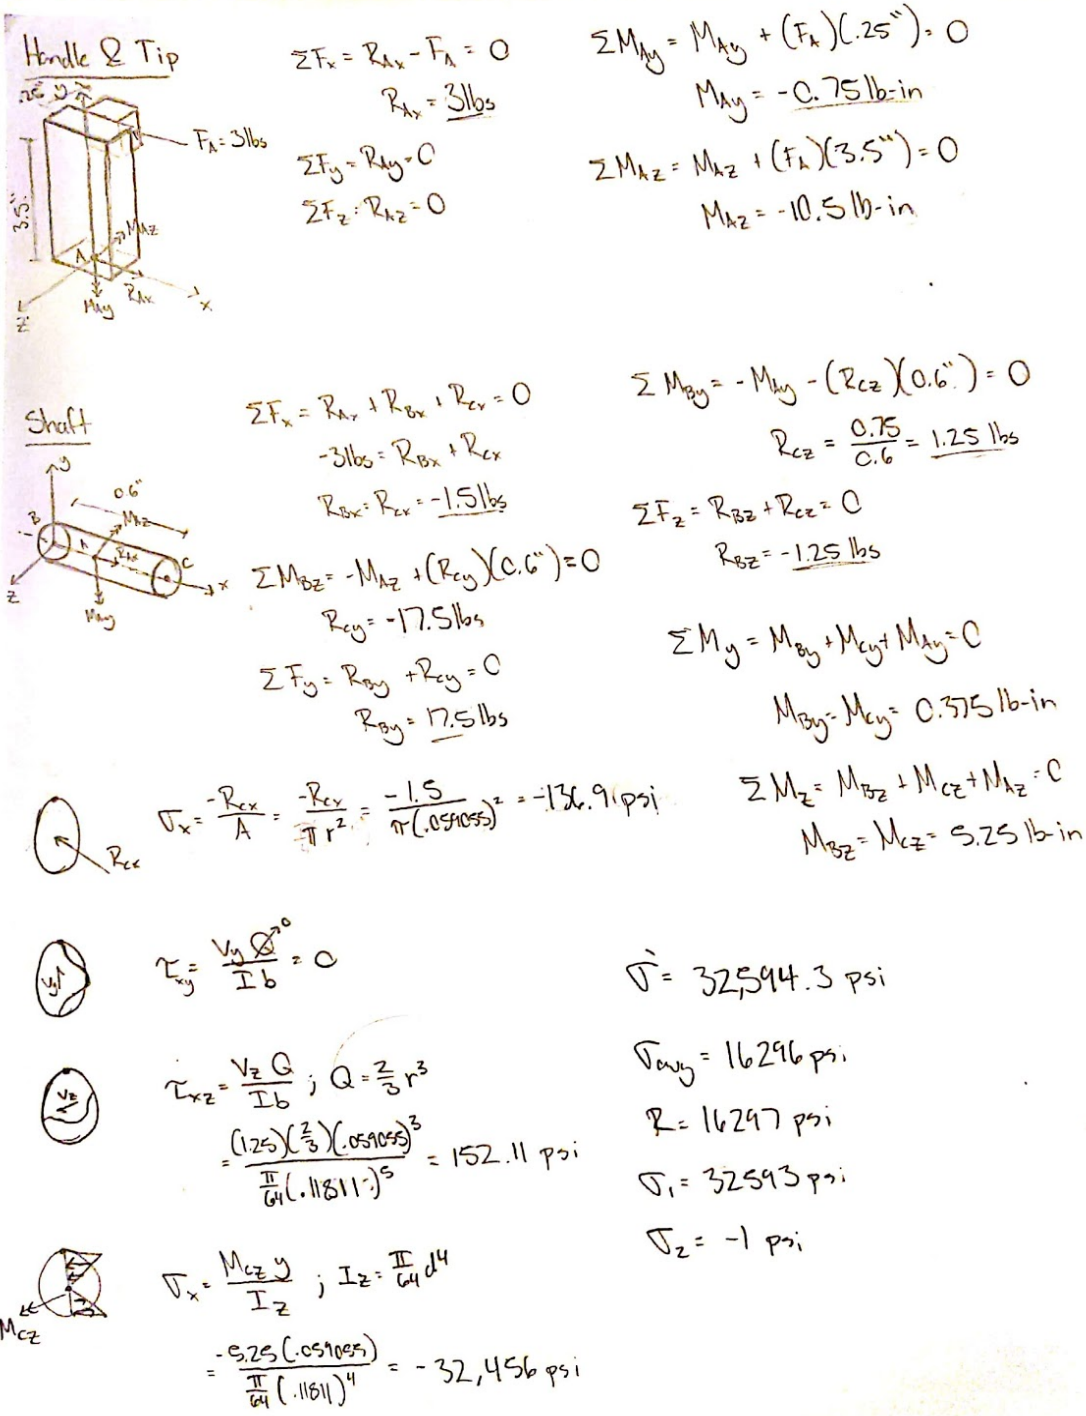 Handle & Tip
.25 y
F_A = 3lbs
3.5"
A
M_Az
R_Ax
M_Ay
x
z
ΣF_x = R_Ax - F_A = 0
R_Ax = 3lbs
ΣF_y = R_Ay = 0
ΣF_z = R_Az = 0
ΣM_Ay = M_Ay + (F_A)(.25") = 0
M_Ay = -0.75 lb-in
ΣM_Az = M_Az + (F_A)(3.5") = 0
M_Az = -10.5 lb-in
Shaft
y
0.6"
B
M_Az
A
R_Ax
C
x
z
M_Ay
ΣF_x = R_Ax + R_Bx + R_Cx = 0
-3lbs = R_Bx + R_Cx
R_Bx = R_Cx = -1.5lbs
ΣM_Bz = -M_Az + (R_Cy)(0.6") = 0
R_Cy = -17.5lbs
ΣF_y = R_By + R_Cy = 0
R_By = 17.5 lbs
ΣM_By = -M_Ay - (R_Cz)(0.6") = 0
R_Cz = 0.75/0.6 = 1.25 lbs
ΣF_z = R_Bz + R_Cz = 0
R_Bz = -1.25 lbs
ΣM_y = M_By + M_Cy + M_Ay = 0
M_By = M_Cy = 0.375 lb-in
ΣM_z = M_Bz + M_Cz + M_Az = 0
M_Bz = M_Cz = 5.25 lb-in
R_Cx
σ_x = -R_Cx/A = -R_Cx/πr² = -1.5/π(.059055)² = -136.91 psi
V_y
τ_xy = V_y Q/Ib = 0
0
V_z
τ_xz = V_z Q/Ib ; Q = 2/3 r³
= (1.25)(2/3)(.059055)³ / π/64 (.11811)⁵ = 152.11 psi
M_Cz
σ_x = M_Cz y/I_z ; I_z = π/64 d⁴
= -5.25(.059055) / π/64 (.11811)⁴ = -32,456 psi
σ' = 32,594.3 psi
σ_avg = 16296 psi
R = 16297 psi
σ_1 = 32593 psi
σ_2 = -1 psi